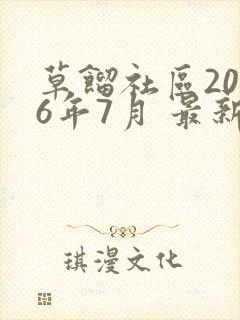 草餾社區20
6年7月 最新
琪漫文化